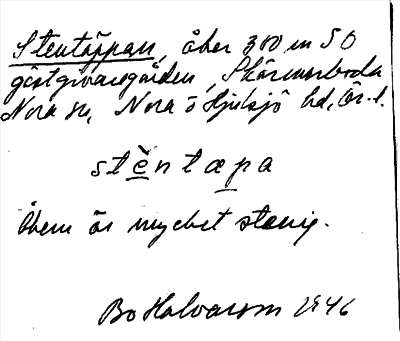 Stentäppan, åker 300 m SO
gästgivaregården, Skärmarboda
Nora sn, Nora o Hjulsjö hd, Ör. l.
stè̱ntæp̱a
Åkern är mycket stenig.
Bo Halvarson 1946